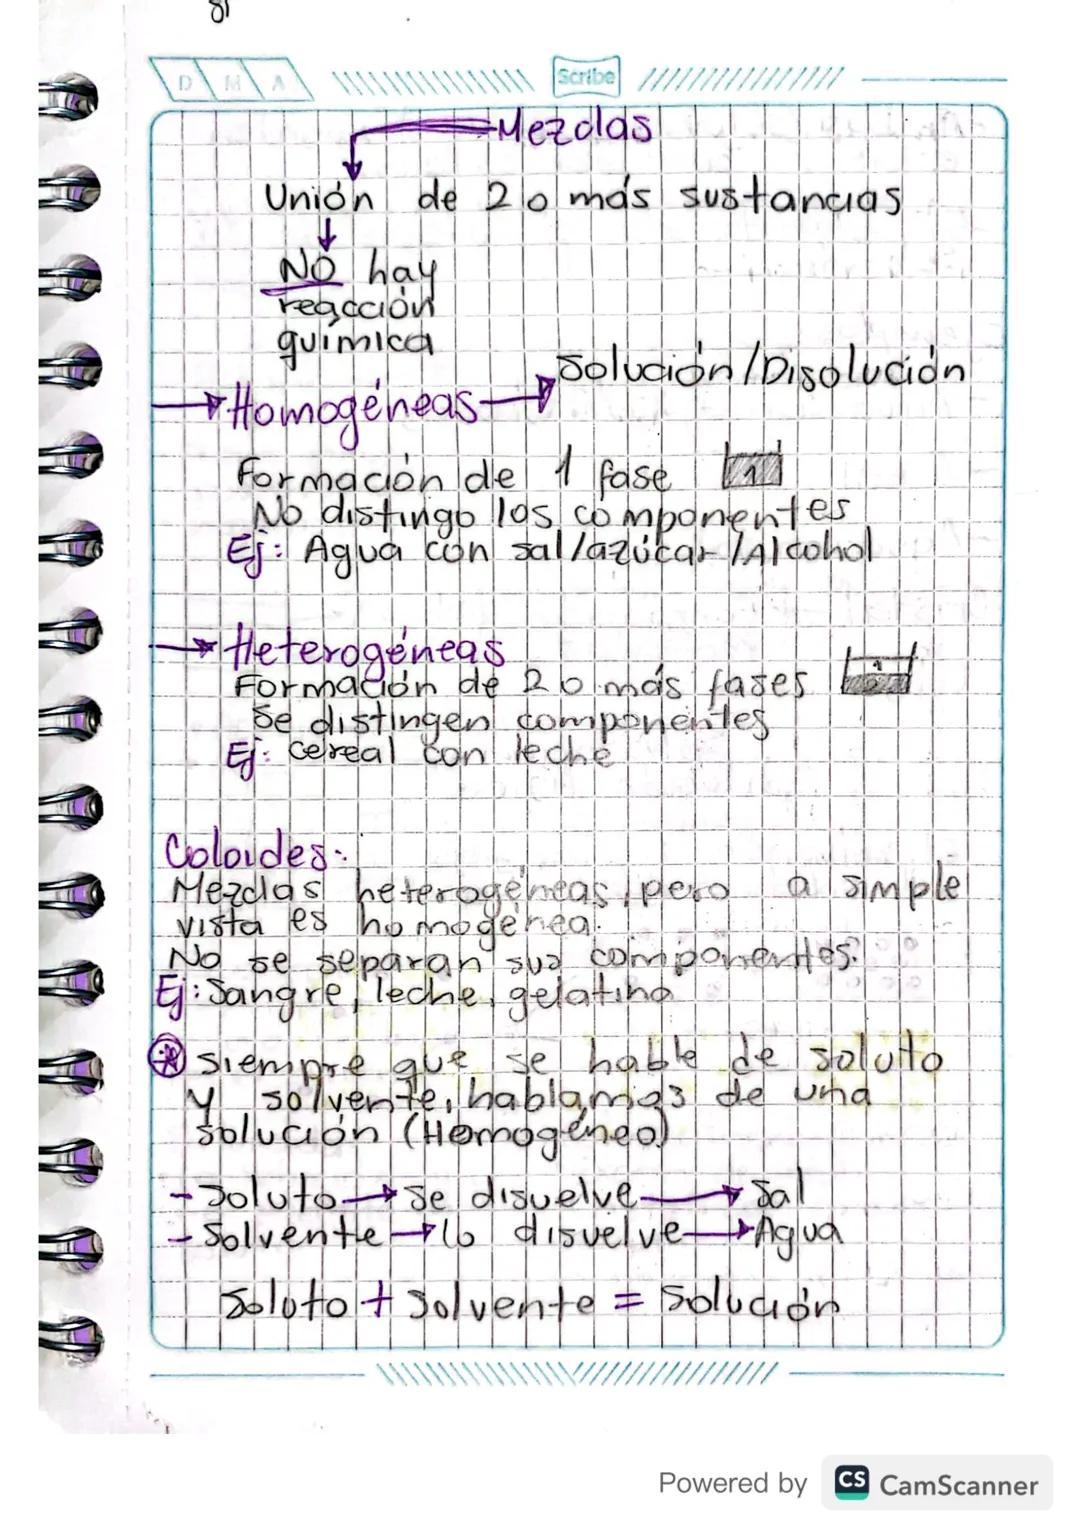 D M A
Scribe
Mezclas
Unión de 2 o más sustancias
NO hay
reacción
química
Solución/Disolución
Homogéneas
Formación de 1 fase
1
No distingo los componentes
Ej: Agua con sal/azúcar/Alcohol
Heterogéneas
Formación de 2 o más fases
1
2
Se distingen componentes
Ej: cereal con leche
Coloides:
Mezclas heterogéneas, pero a simple
vista es homogénea.
No se separan sus componentes.
Ej: Sangre, leche, gelatina
Siempre que se hable de soluto
y solvente, hablamos de una
solución (Homogéneo)
- Soluto → se disuelve → Sal
- Solvente → lo disuelve → Agua
Soluto + Solvente = Solución
Powered by CS CamScanner